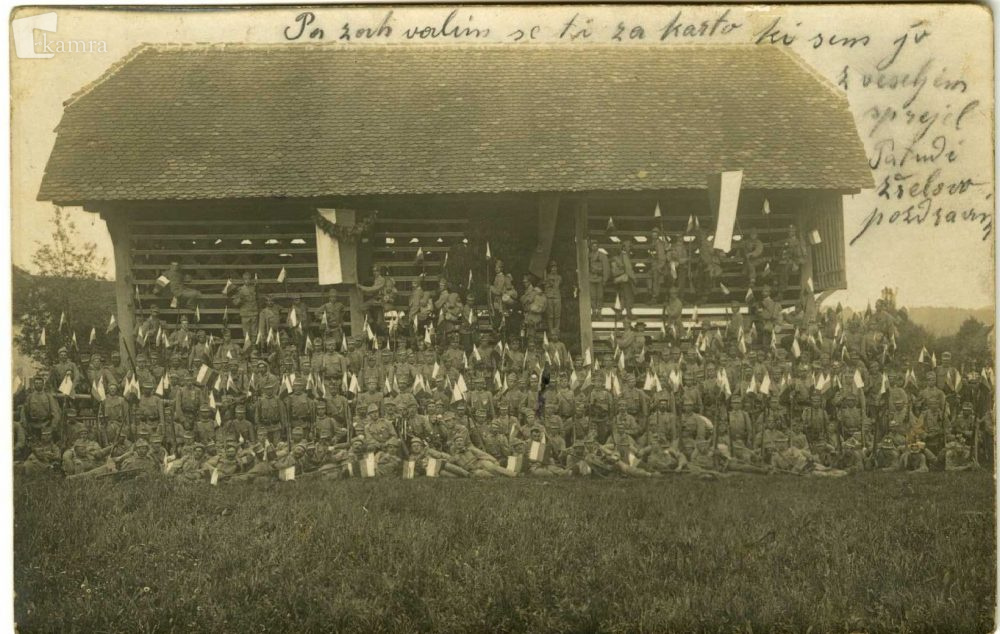 kamra
Pa zoch valim se ti za karto ki sem jo
z veseljem
sprejel
Pa tudi
želovo
pozdravim